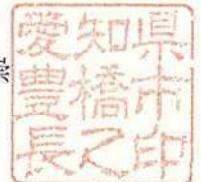 愛知県
豊橋市
長之印